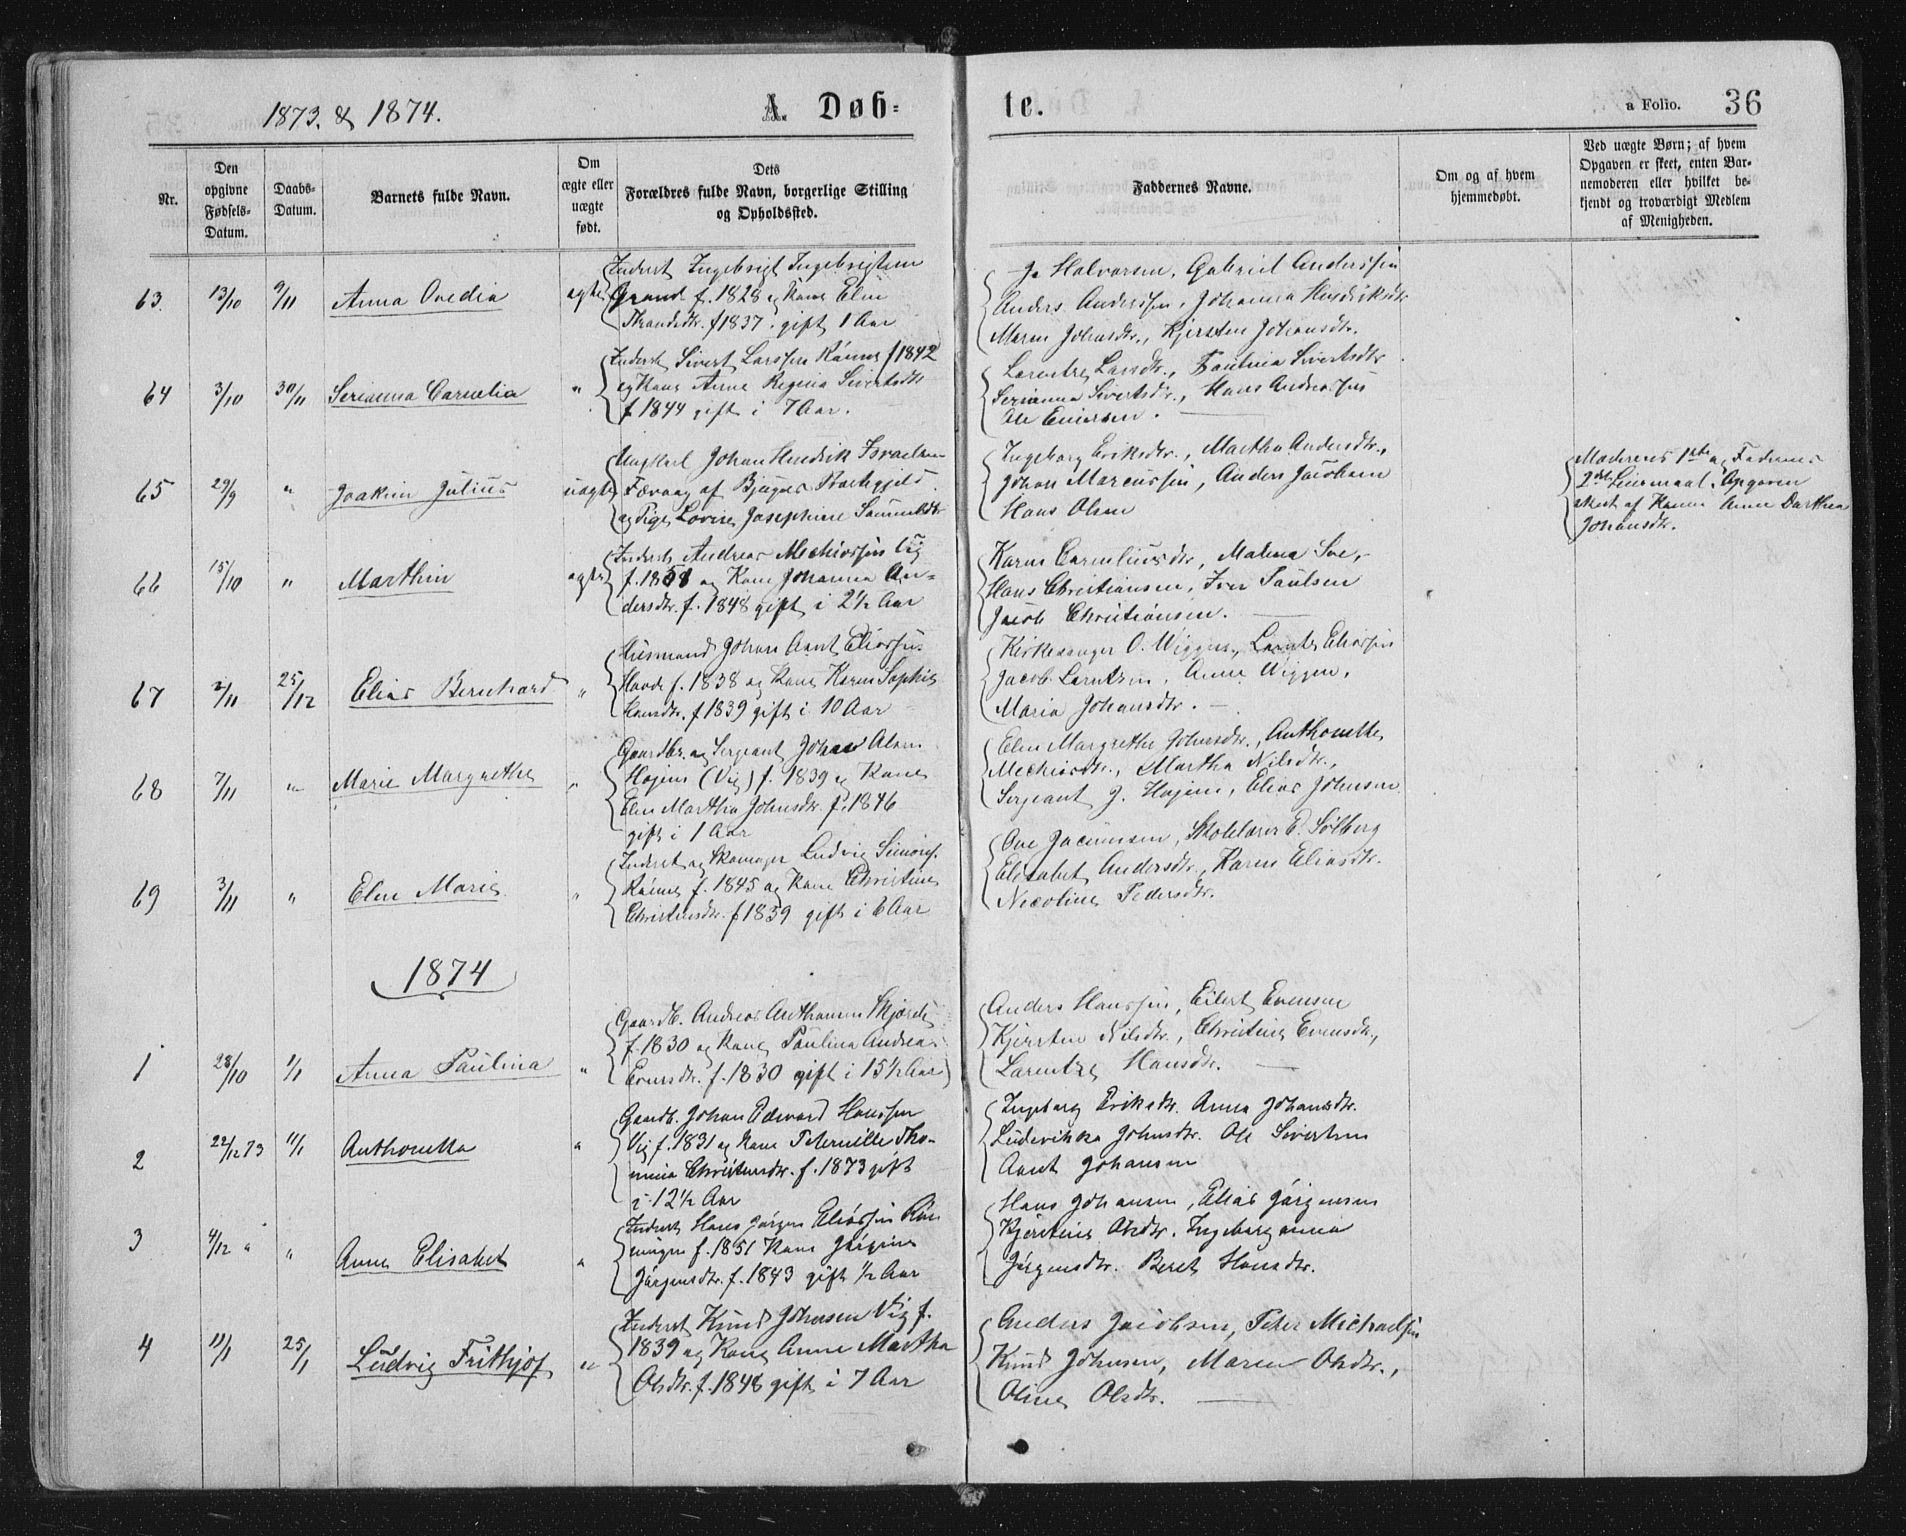 1873. & 1874.
A. Døb=
te.
a Folio. 36
Nr.
Den opgivne Fødsels-Datum.
Daabs-Datum.
Barnets fulde Navn.
Om ægte eller uægte født.
Dets Forældres fulde Navn, borgerlige Stilling og Opholdssted.
Faddernes Navne.
Om og af hvem hjemmedøbt.
Ved uægte Børn; af hvem Opgaven er skeet, enten Barnemoderen eller hvilket bekjendt og troværdigt Medlem af Menigheden.
63. 13/10 9/11 Anna Ovedia ægte
Inderst Ingebrigt Ingebrigtsen
Grande f. 1828 og Kone Elen
f 1837. gift 1 Aar
Jo Halvorsen, Gabriel Anderssen
Anders Anderssen, Johanna Hendriksdtr.
Maren Johnsdtr., Kjersten Johansdtr.
64 3/10 30/11 Serianna Cornelia "
Inderst Sivert Larssen Rønne f 1842
og Kone Anne Regina Sivertsdtr
f. 1844 gift i 7 Aar.
Larentze Larsdtr., Paulina Sivertsdtr
Serianna Sivertsdtr., Hans Andreassen
Ole Einersen.
65 29/9 " Joakim Julius uægte
Ungkarl Johan Hendrik Israelsen
af Bjugns
og Pige Lovise Josephine Samuelsdtr
Ingeborg Eriksdtr., Martha Andersdtr.,
Johan Marcussen, Anders Jacobsen
Hans Olsen
Moderens 1ste og Faderens
2det Leiermaal. Opgaven
skeet af Kone Anne Darthea
Johansdtr.
66 15/10 " Marthin ægte
Inderst Andreas Mechiorssen Vig
f. 1851 og Kone Johanna An=
dersdtr. f. 1848 gift i 2½ Aar
Karen Corneliusdtr., Malena Soe,
Hans Christiansen, Iver Paulsen
Jacob Christiansen.
67 2/11 25/12 Elias Bernhard "
Huusmand Johan Arnt Eliassen
Hovde f. 1838 og Kone Karen Sophie
Hansdtr. f 1839 gift i 10 Aar
Kirkesanger O. Wiggen, Lorents Eliassen
Jacob Larntzen, Anne Wiggen,
Maria Johansdtr.
68 7/11 " Marie Margrethe "
Gaardbr. og Sergeant Johan Olsen
Hojem (Vig) f. 1839 og Kone
Elen Martha Johnsdtr. f. 1846
gift i 1 Aar
Elen Margrethe Johnsdtr., Anthonette
Mechiorsdtr., Martha Nilsdtr.,
Sergeant J. Hojem, Elias Johnsen
69 3/11 " Elen Marie "
Inderst og Skomager Ludvig Simons.
Rønne f. 1845 og Kone Christine
Christensdtr. f 1839 gift i 6 Aar
Ove Jacumsen, Skolelærer P. Solberg
Elisabet Andersdtr., Karen Eliasdtr.
Nicoline Pedersdtr.
1874
1 28/10 1/1 Anna Paulina "
Gaardb. Andreas Anthonsen
f. 1830 og Kone Paulina Andrea
Evensdtr. f. 1830 gift i 15½ Aar)
Anders Hanssen, Eilert Evensen
Kjersten Nilsdtr., Christine Evensdtr.,
Larentze Hansdtr.
2 22/12 73 11/1 Anthonetta "
Gaardb. Johan Edevard Hanssen
Vig f. 1831 og Kone Peternille Tho=
mina Christensdtr. f. 1873 gift
i 12½ Aar
Ingeborg Eriksdtr. Anna Johansdtr.
Ludevikka Johnsdtr. Ole Sivertsen
Arnt Johansen
3 4/12 " " Anne Elisabet "
Inderst Hans Jørgen Eliassen Røn
ningen f. 1851 Kone Jørgine
Jørgensdtr. f. 1843 gift ½ Aar
Hans Johansen, Elias Jørgensen
Kjerstine Olsdtr. Ingeborganna
Jørgensdtr. Beret Hansdtr.
4 11/1 25/1 Ludvig Frithjof "
Inderst Knud Johnsen Vig f.
1839 og Kone Anne Martha
Olsdtr. f. 1848 gift i 7 Aar
Anders Jacobsen, Peter Michaelsen
Knud Johnsen, Maren Olsdtr.,
Oline Olsdtr.